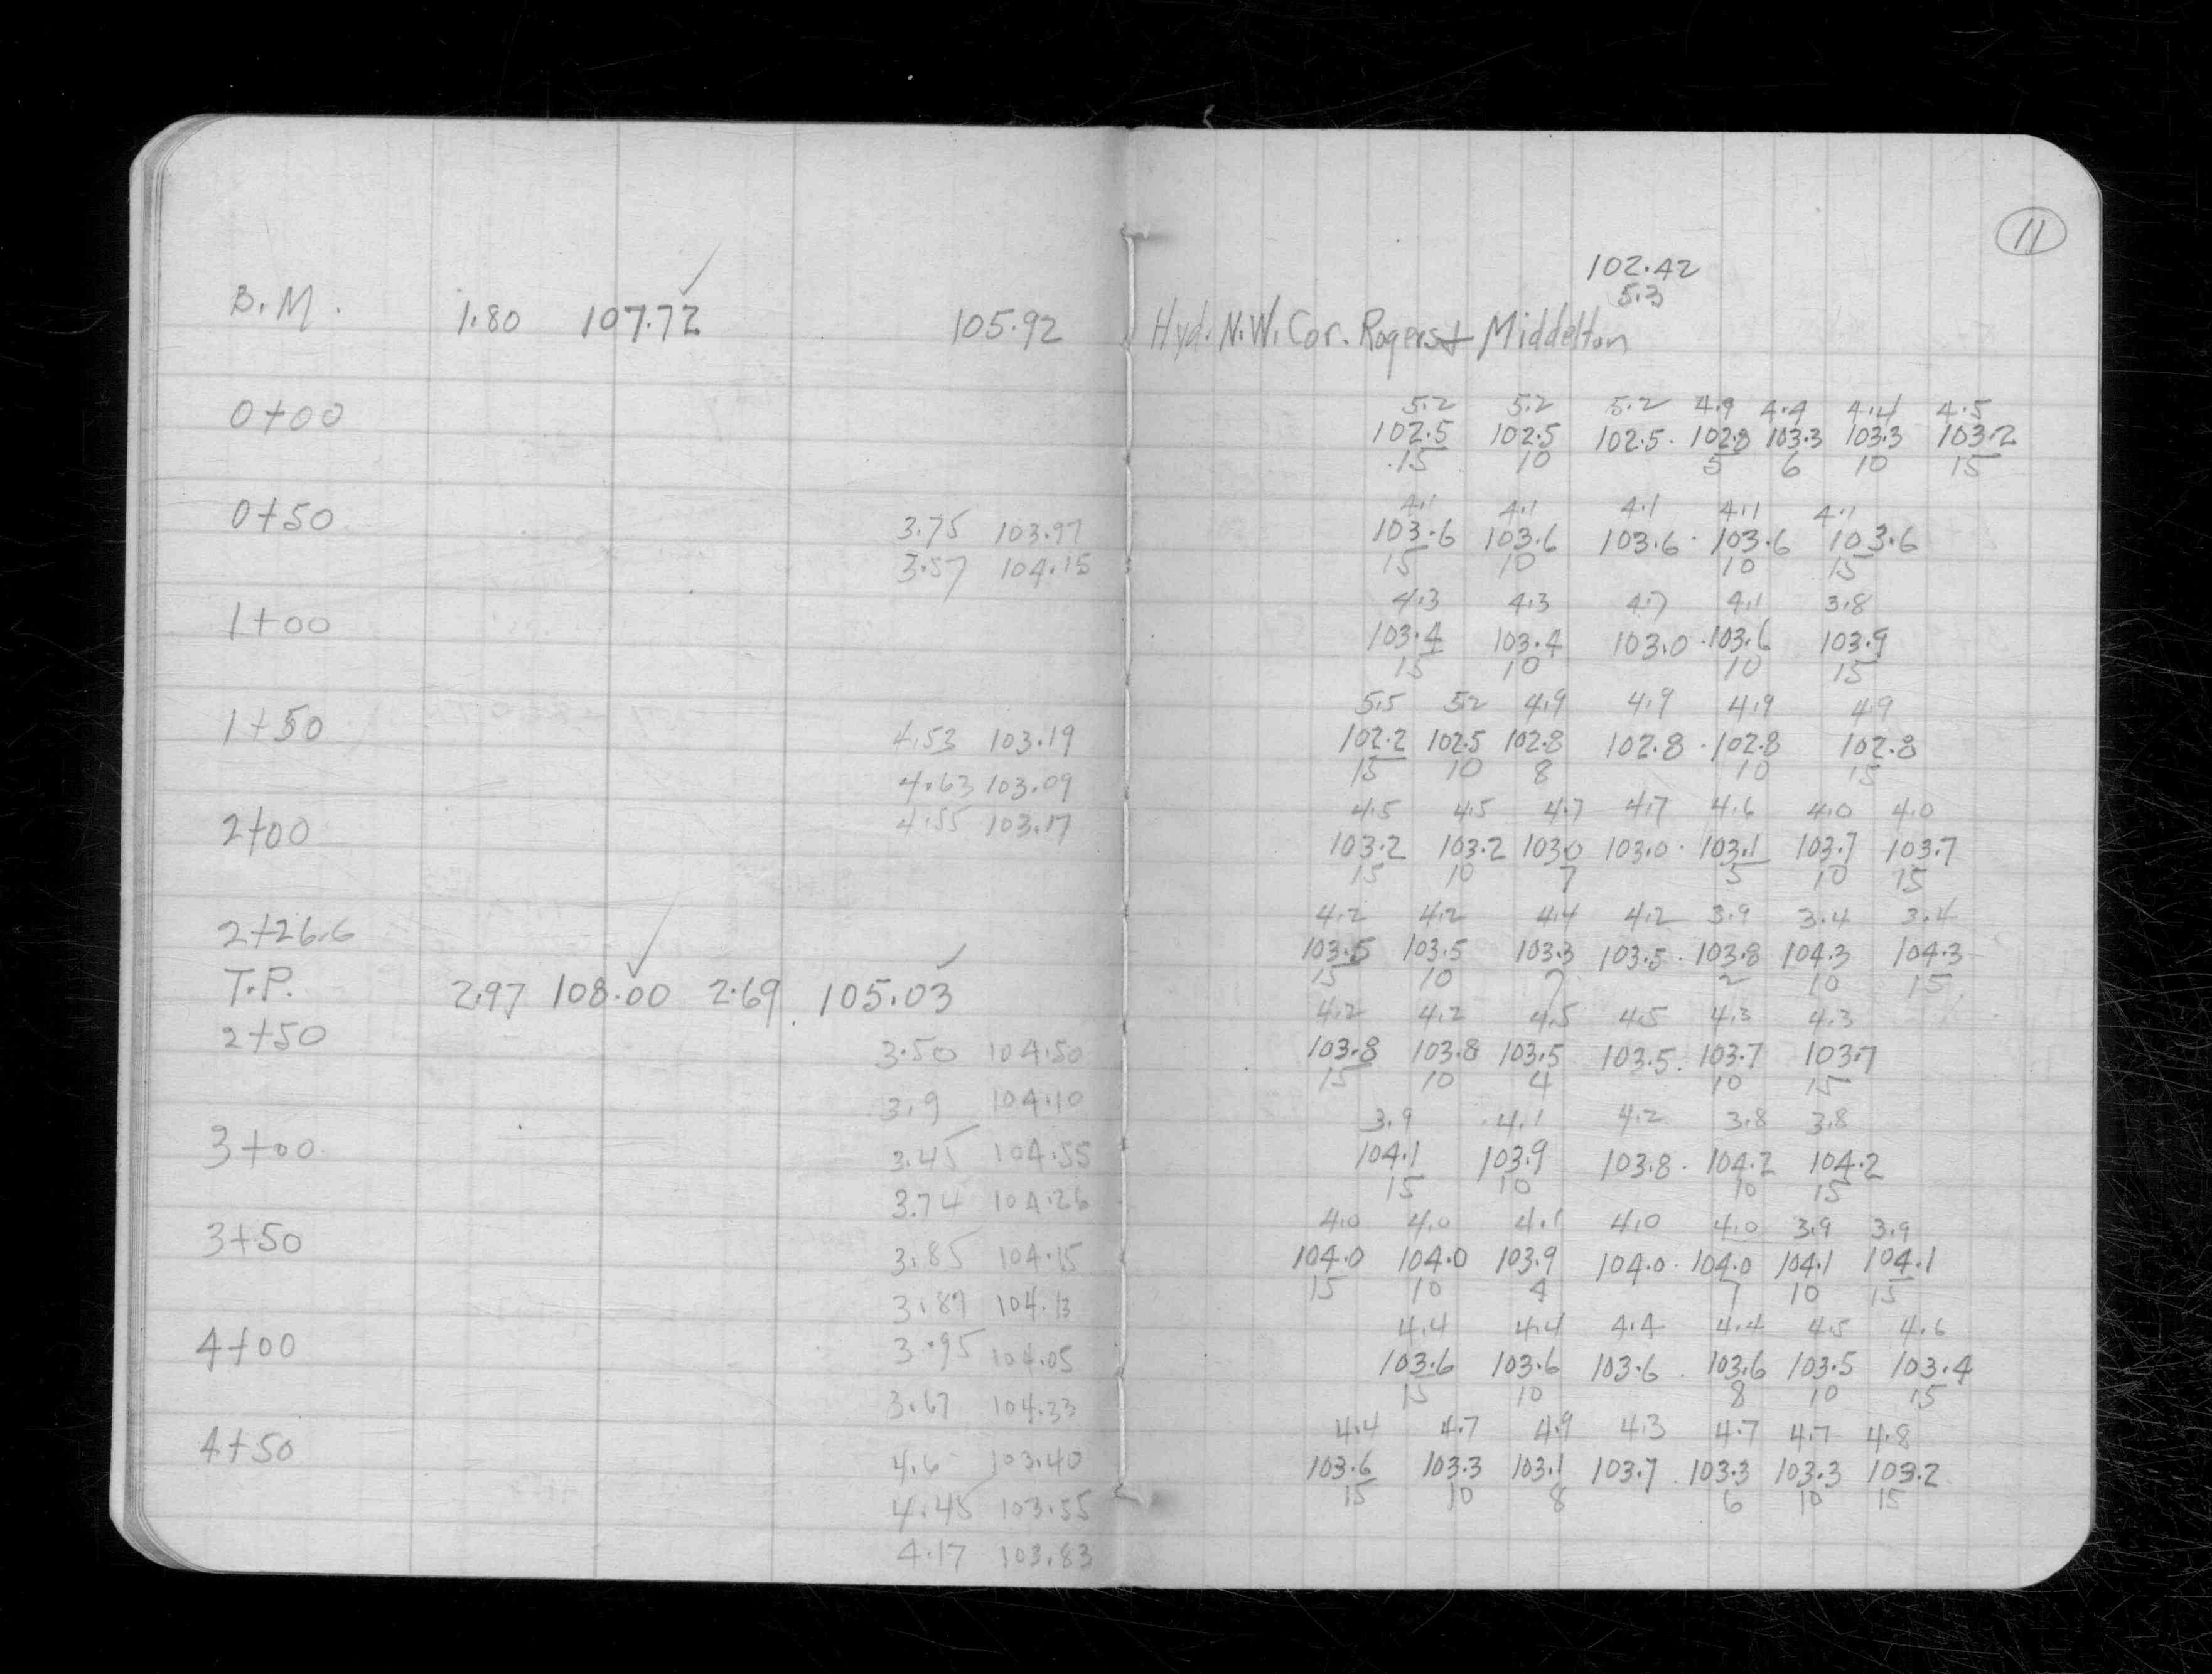 11
102.42
5.3
B.M. 1.80 107.72 ✓ 105.92 Hyd. N.W. Cor. Rogers & Middelton
5.2 5.2 5.2 4.9 4.4 4.4 4.5
0+00 102.5 102.5 102.5 102.8 103.3 103.3 103.2
15 10 5 6 10 15
4.1 4.1 4.1 4.1 4.1
0+50 3.75 103.97 103.6 103.6 103.6 103.6 103.6
3.57 104.15 15 10 10 15
4.3 4.3 4.7 4.1 3.8
1+00 103.4 103.4 103.0 103.6 103.9
15 10 10 15
5.5 5.2 4.9 4.9 4.9 4.9
1+50 4.53 103.19 102.2 102.5 102.8 102.8 102.8 102.8
4.63 103.09 15 10 8 10 15
4.55 103.17 4.5 4.5 4.7 4.7 4.6 4.0 4.0
2+00 103.2 103.2 103.0 103.0 103.1 103.7 103.7
15 10 7 5 10 15
4.2 4.2 4.4 4.2 3.9 3.4 3.4
2+26.6 103.5 103.5 103.3 103.5 103.8 104.3 104.3
15 10 7 2 10 15
T.P. 2.97 108.00 ✓ 2.69 105.03 ✓
4.2 4.2 4.5 4.5 4.3 4.3
2+50 3.50 104.50 103.8 103.8 103.5 103.5 103.7 103.7
15 10 4 10 15
3.9 104.10 3.9 4.1 4.2 3.8 3.8
3+00 3.45 104.55 104.1 103.9 103.8 104.2 104.2
3.74 104.26 15 10 10 15
4.0 4.0 4.1 4.0 4.0 3.9 3.9
3+50 3.85 104.15 104.0 104.0 103.9 104.0 104.0 104.1 104.1
3.87 104.13 15 10 4 7 10 15
4.4 4.4 4.4 4.4 4.5 4.6
4+00 3.95 104.05 103.6 103.6 103.6 103.6 103.5 103.4
3.67 104.33 15 10 8 10 15
4.4 4.7 4.9 4.3 4.7 4.7 4.8
4+50 4.6 103.40 103.6 103.3 103.1 103.7 103.3 103.3 103.2
4.45 103.55 15 10 8 6 10 15
4.17 103.83